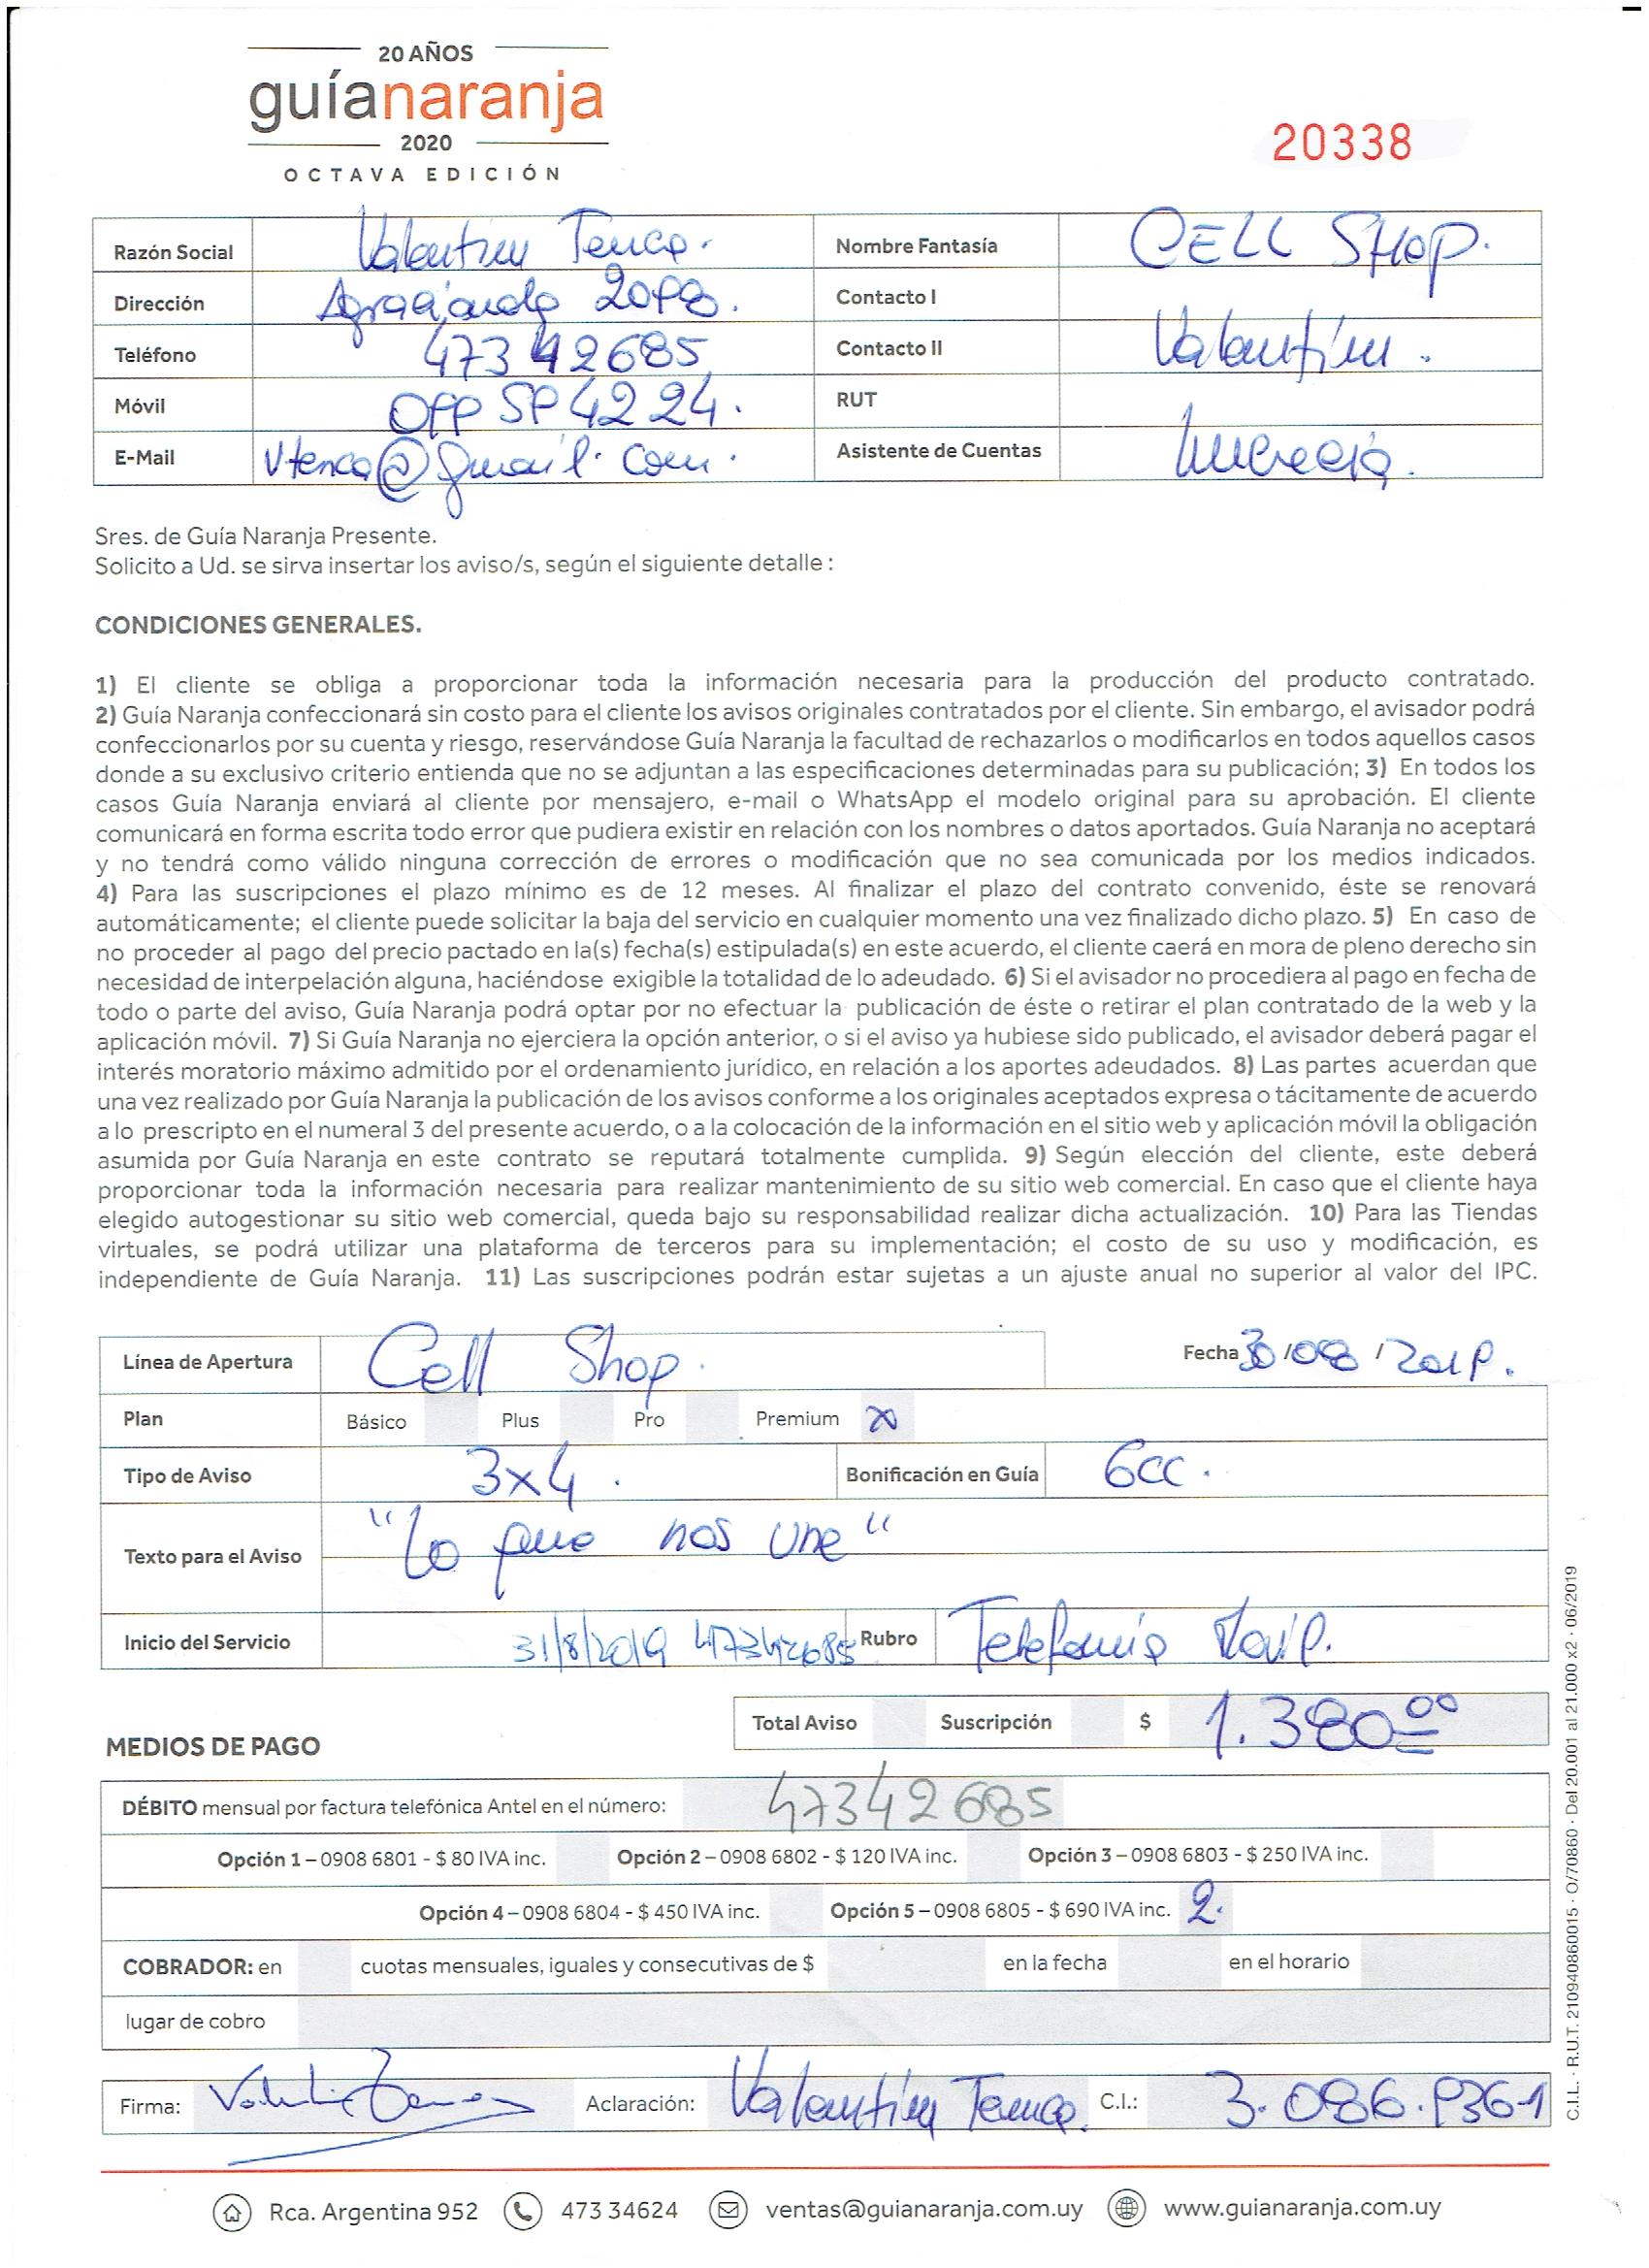 20 AÑOS
guíanaranja
2020
OCTAVA EDICIÓN
20338
Razón Social Valentín Tenca. Nombre Fantasía CELL SHOP.
Dirección Agraciada Contacto I
Teléfono 473 42685 Contacto II Valentín.
Móvil RUT
E-Mail vtenca@gmail.com. Asistente de Cuentas
Sres. de Guía Naranja Presente.
Solicito a Ud. se sirva insertar los aviso/s, según el siguiente detalle :
CONDICIONES GENERALES.
1) El cliente se obliga a proporcionar toda la información necesaria para la producción del producto contratado.
2) Guía Naranja confeccionará sin costo para el cliente los avisos originales contratados por el cliente. Sin embargo, el avisador podrá
confeccionarlos por su cuenta y riesgo, reservándose Guía Naranja la facultad de rechazarlos o modificarlos en todos aquellos casos
donde a su exclusivo criterio entienda que no se adjuntan a las especificaciones determinadas para su publicación; 3) En todos los
casos Guía Naranja enviará al cliente por mensajero, e-mail o WhatsApp el modelo original para su aprobación. El cliente
comunicará en forma escrita todo error que pudiera existir en relación con los nombres o datos aportados. Guía Naranja no aceptará
y no tendrá como válido ninguna corrección de errores o modificación que no sea comunicada por los medios indicados.
4) Para las suscripciones el plazo mínimo es de 12 meses. Al finalizar el plazo del contrato convenido, éste se renovará
automáticamente; el cliente puede solicitar la baja del servicio en cualquier momento una vez finalizado dicho plazo. 5) En caso de
no proceder al pago del precio pactado en la(s) fecha(s) estipulada(s) en este acuerdo, el cliente caerá en mora de pleno derecho sin
necesidad de interpelación alguna, haciéndose exigible la totalidad de lo adeudado. 6) Si el avisador no procediera al pago en fecha de
todo o parte del aviso, Guía Naranja podrá optar por no efectuar la publicación de éste o retirar el plan contratado de la web y la
aplicación móvil. 7) Si Guía Naranja no ejerciera la opción anterior, o si el aviso ya hubiese sido publicado, el avisador deberá pagar el
interés moratorio máximo admitido por el ordenamiento jurídico, en relación a los aportes adeudados. 8) Las partes acuerdan que
una vez realizado por Guía Naranja la publicación de los avisos conforme a los originales aceptados expresa o tácitamente de acuerdo
a lo prescripto en el numeral 3 del presente acuerdo, o a la colocación de la información en el sitio web y aplicación móvil la obligación
asumida por Guía Naranja en este contrato se reputará totalmente cumplida. 9) Según elección del cliente, este deberá
proporcionar toda la información necesaria para realizar mantenimiento de su sitio web comercial. En caso que el cliente haya
elegido autogestionar su sitio web comercial, queda bajo su responsabilidad realizar dicha actualización. 10) Para las Tiendas
virtuales, se podrá utilizar una plataforma de terceros para su implementación; el costo de su uso y modificación, es
independiente de Guía Naranja. 11) Las suscripciones podrán estar sujetas a un ajuste anual no superior al valor del IPC.
Línea de Apertura Cell Shop. Fecha 30/08/2019.
Plan Básico Plus Pro Premium X
Tipo de Aviso 3x4. Bonificación en Guía 6cc.
Texto para el Aviso "Lo que nos une"
Inicio del Servicio 31/8/2019 47342685 Rubro Telefonía
Total Aviso Suscripción $ 1.380.00
MEDIOS DE PAGO
DÉBITO mensual por factura telefónica Antel en el número: 47342685
Opción 1 – 0908 6801 - $ 80 IVA inc. Opción 2 – 0908 6802 - $ 120 IVA inc. Opción 3 – 0908 6803 - $ 250 IVA inc.
Opción 4 – 0908 6804 - $ 450 IVA inc. Opción 5 – 0908 6805 - $ 690 IVA inc. 2.
COBRADOR: en cuotas mensuales, iguales y consecutivas de $ en la fecha en el horario
lugar de cobro
Firma: Aclaración: Valentín Tenca. C.I.: 3.086.936-1
Rca. Argentina 952 473 34624 ventas@guianaranja.com.uy www.guianaranja.com.uy
C.I.L. · R.U.T. 210940860015 · O/70860 · Del 20.001 al 21.000 x2 · 06/2019